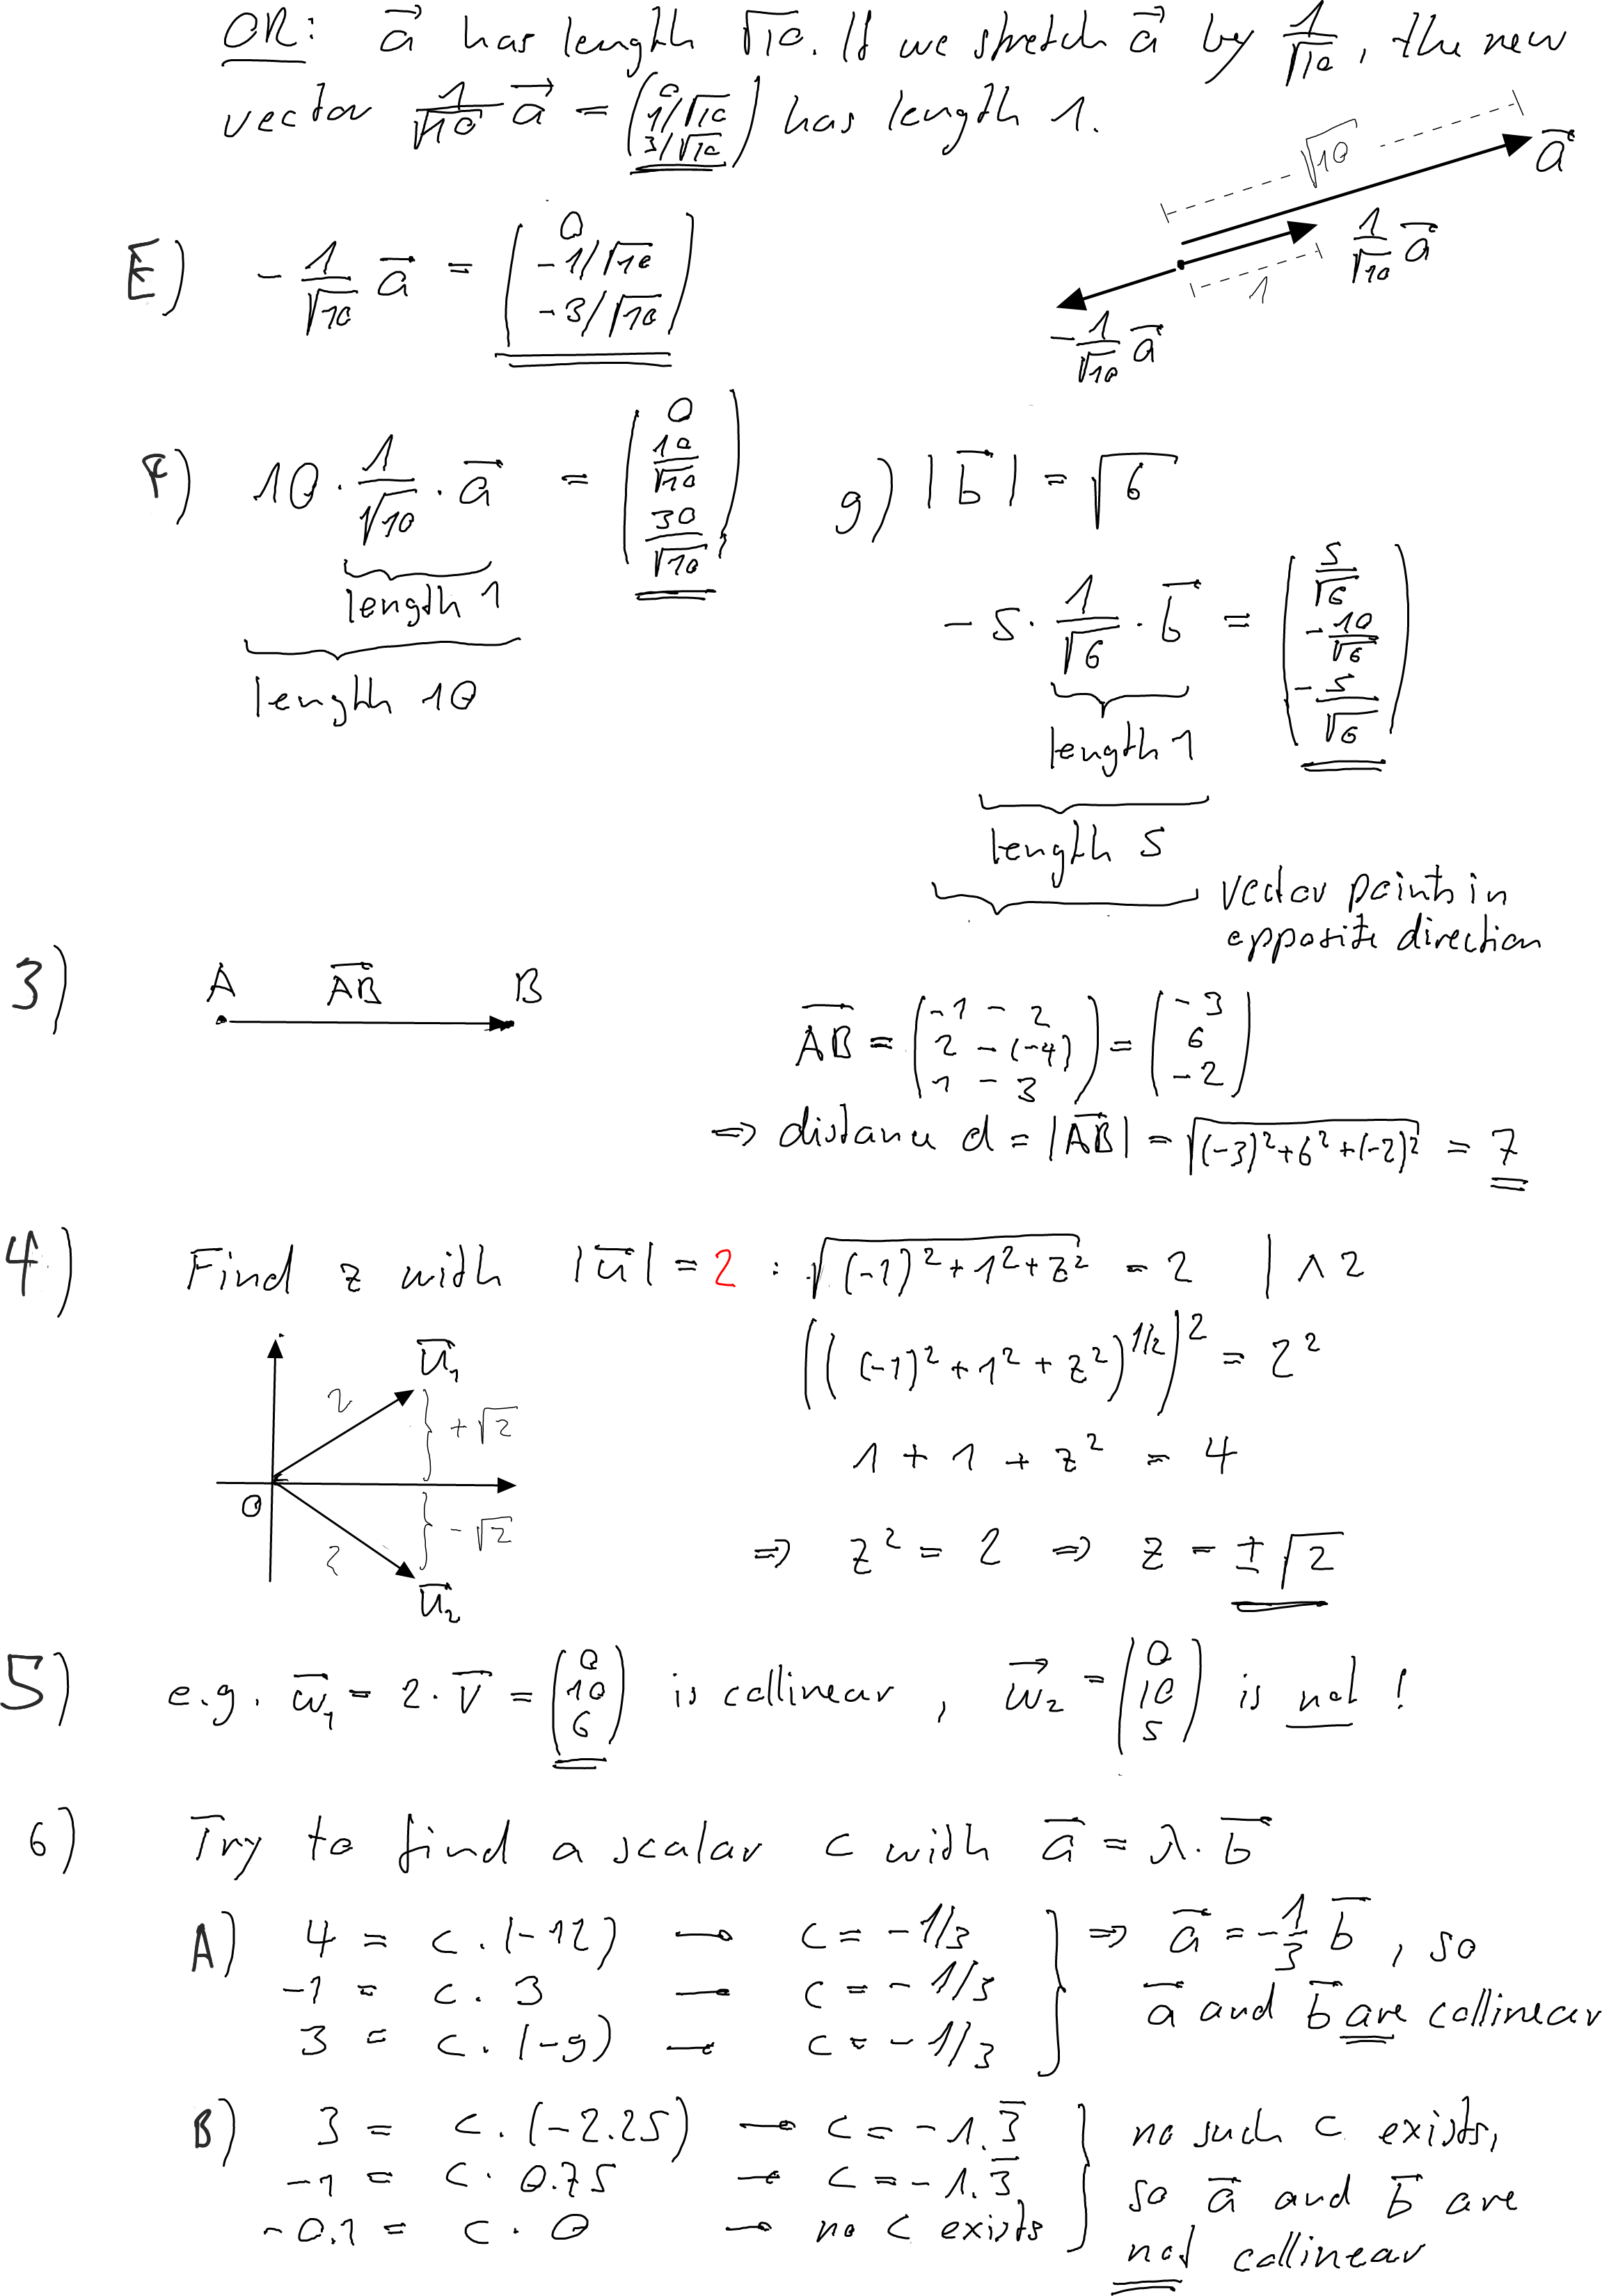 OR: a⃗ has length √10. If we stretch a⃗ by 1/√10, the new
vector 1/√10 a⃗ = (0, 1/√10, 3/√10) has length 1.
√10
a⃗
1/√10 a⃗
1
-1/√10 a⃗
E) -1/√10 a⃗ = (0, -1/√10, -3/√10)
F) 10 · 1/√10 · a⃗ = (0, 10/√10, 30/√10)
length 1
length 10
g) |b⃗| = √6
-5 · 1/√6 · b⃗ = (5/√6, -10/√6, -5/√6)
length 1
length 5
vector points in
opposite direction
3) A AB⃗ B
AB⃗ = (-1 - 2, 2 - (-4), 1 - 3) = (-3, 6, -2)
⇒ distance d = |AB⃗| = √((-3)²+6²+(-2)²) = 7
4) Find z with |u⃗| = 2 : √((-1)²+1²+z²) = 2 | ∧2
(((-1)²+1²+z²)^1/2)² = 2²
1 + 1 + z² = 4
⇒ z² = 2 ⇒ z = ±√2
u⃗₁
2
+√2
0
-√2
2
u⃗₂
5) e.g. w⃗₁ = 2·v⃗ = (0, 10, 6) is collinear, w⃗₂ = (0, 10, 5) is not!
6) Try to find a scalar c with a⃗ = λ·b⃗
A) 4 = c·(-12) → c = -1/3
-1 = c·3 → c = -1/3
3 = c·(-9) → c = -1/3
⇒ a⃗ = -1/3 b⃗, so
a⃗ and b⃗ are collinear
B) 3 = c·(-2.25) → c = -1.3̅
-1 = c·0.75 → c = -1.3̅
-0.1 = c·0 → no c exists
no such c exists,
so a⃗ and b⃗ are
not collinear